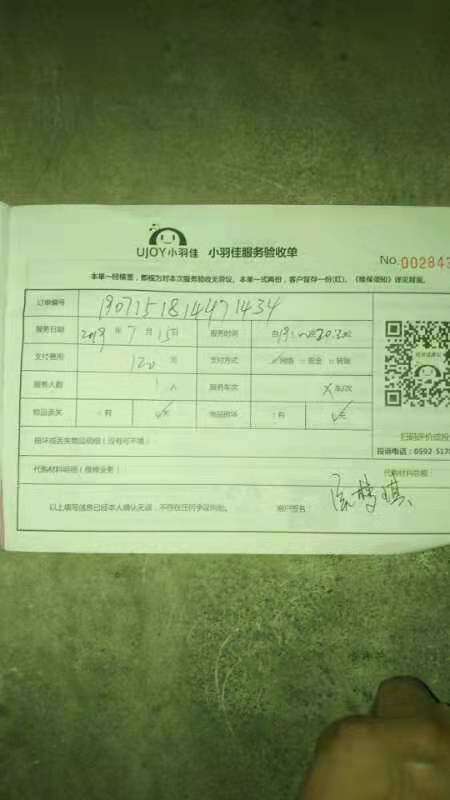 UJOY小羽佳 小羽佳服务验收单
No.002843
本单一经填签，即视为对本次服务验收无异议。本单一式两份，客户留存一份(红)。《维保须知》详见背面。
订单编号 1907151814471434
服务日期 2019 年 7 月 15日 服务时间
支付费用 120 元 支付方式 网络 现金 转账
服务人数 1 人 服务车次 X 车/次
物品丢失 有 无 物品损坏 有 无
损坏或丢失物品明细（没有可不填）
扫码评价或投
投诉电话：0592-517
代购材料明细（维修业务） 代购材料总额
以上填写信息已经本人确认无误，不存在任何争议纠纷。 客户签名